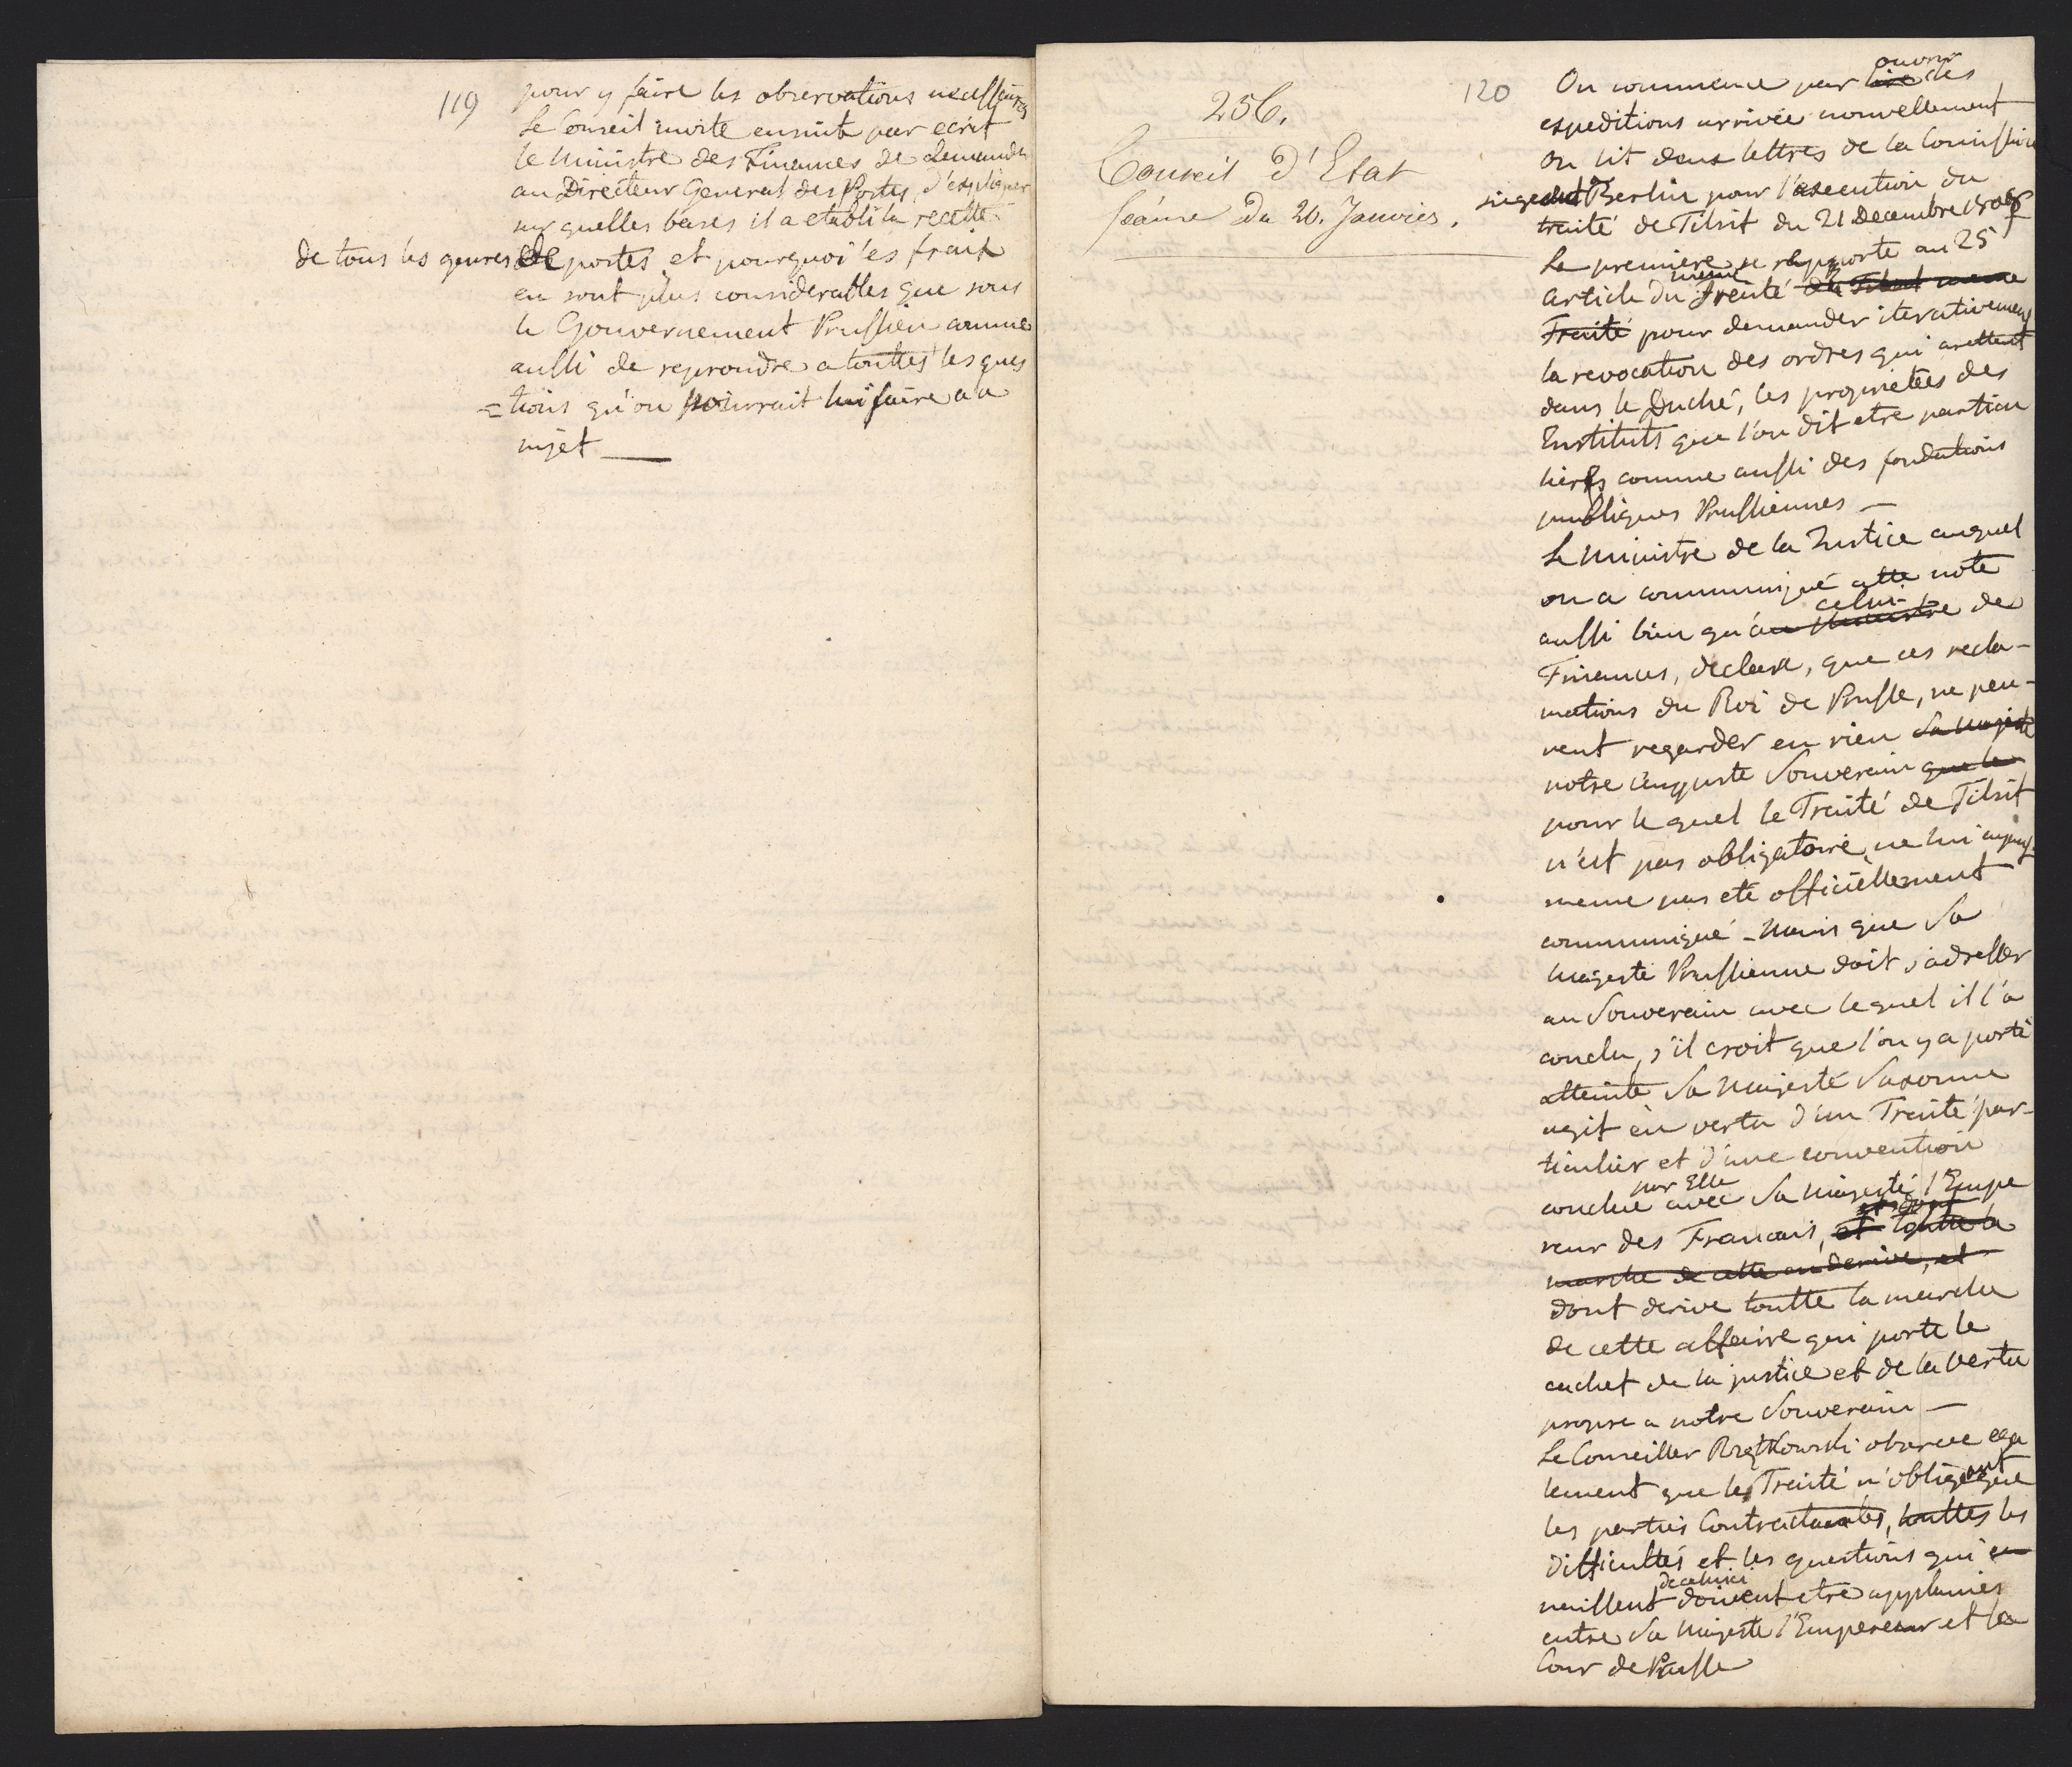 119
pour y faire les observations necessaires
Le Conseil invite ensuite par ecrit
le Ministre des Finances de demander
au Directeur General des Postes, d'expliquer
sur quelles bases il a etabli la recette
de tous les genres de postes et pourquoi les frais
en sont plus considerables que sous
le Gouvernement Prussien comme
aussi de repondre a touttes les ques
= tions qu'on pourrait lui faire a ce
sujet
256.
Conseil d'Etat
séance du 20. Janvier.
120
ouvrir
On commence par lire des
expeditions arrivée nouvellement
on lit deux lettres de la Comission
siegeant Berlin pour l'execution du
traité de Tilsit du 21 Decembre 1808
La premiere se rapporte au 25
meme
article du Traité de Tilsit meme
Traité pour demander iterativement
la revocation des ordres qui arettent
dans le Duché, les proprietées des
Instituts que l'on dit etre particu
liers comme aussi des fondations
publiques Prussiennes —
Le Ministre de la Justice auquel
on a communiqué cette note
celui
aussi bien qu'au Ministre de
Finances, declare, que ces recla-
mations du Roi de Prusse, ne peu-
vent regarder en rien Sa Majesté
notre auguste Souverain que le
pour lequel le Traité de Tilsit
n'est pas obligatoire, ne lui ayant
meme pas eté officiellement
communiqué - Mais que Sa
Majesté Prussienne doit s'adresser
au Souverain avec lequel il l'a
conclu, s'il croit que l'on y a porté
atteinte Sa Majesté Saxonne
agit en vertu d'un Traité par-
ticulier et d'une convention
par Elle
conclue avec Sa Majesté l'Empe
reur des Francais, et toutte la
marche de cette en derive, et
dont derive toutte la marche
de cette affaire qui porte le
cachet de la justice et de la vertu
propre a notre Souverain —
Le Conseiller observe ega
lement que les Traité n'obligeant que
les parties Contractantes, touttes les
difficultés et les questions qui en
de celuici
naissent doivent etre applanies
entre Sa Majesté l'Empereur et la
Cour de Prusse